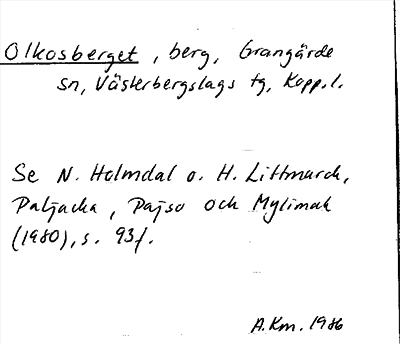 Olkosberget, berg, Grangärde
sn, Västerbergslags tg, Kopp.l.
Se N. Holmdal o. H. Littmarck,
Paljacka, Pajso och Mylimak
(1980), s. 93f.
A.Km. 1986